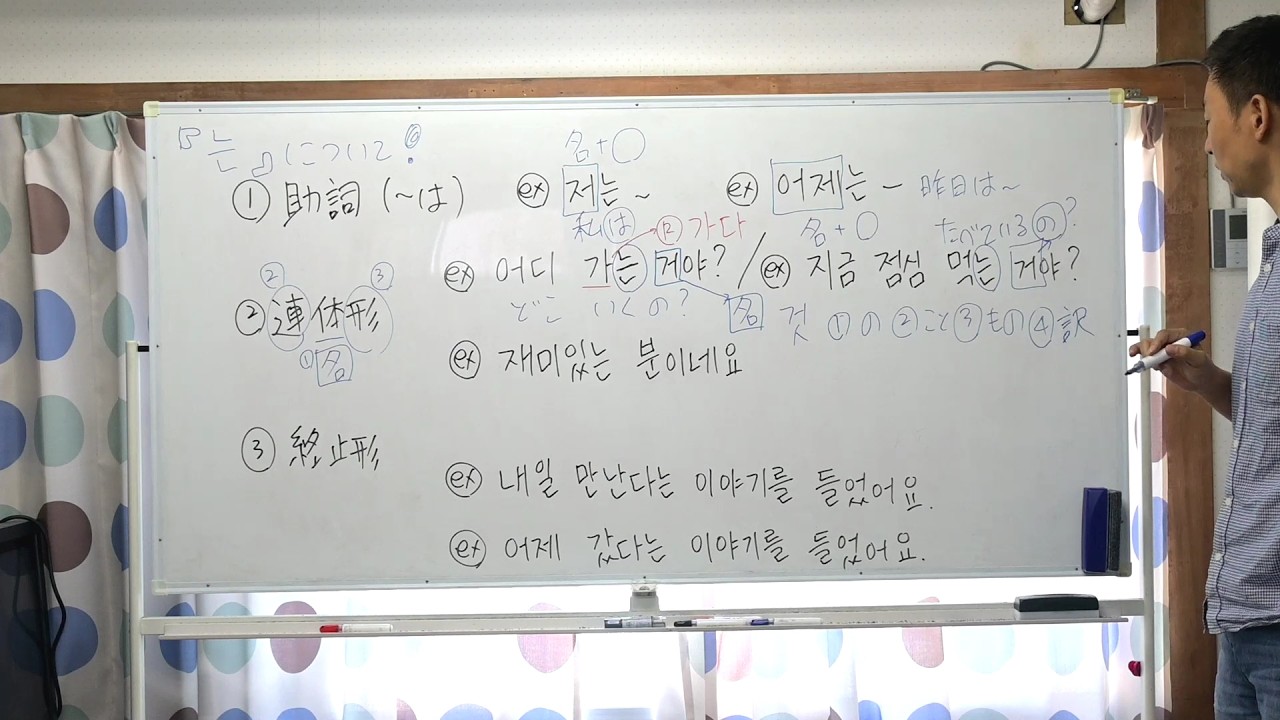 는 について!
名+○
① 助詞 (~は) ex 저는 ~ ex 어제는 ~ 昨日は~
私は 動 가다 名+○ たべているの?
② 連体形 ex 어디 가는 거야? / ex 지금 점심 먹는 거야?
② ③ ① 名
どこ いくの? 名 것 ①の ②こと ③もの ④訳
ex 재미있는 분이네요
③ 終止形
ex 내일 만난다는 이야기를 들었어요.
ex 어제 갔다는 이야기를 들었어요.